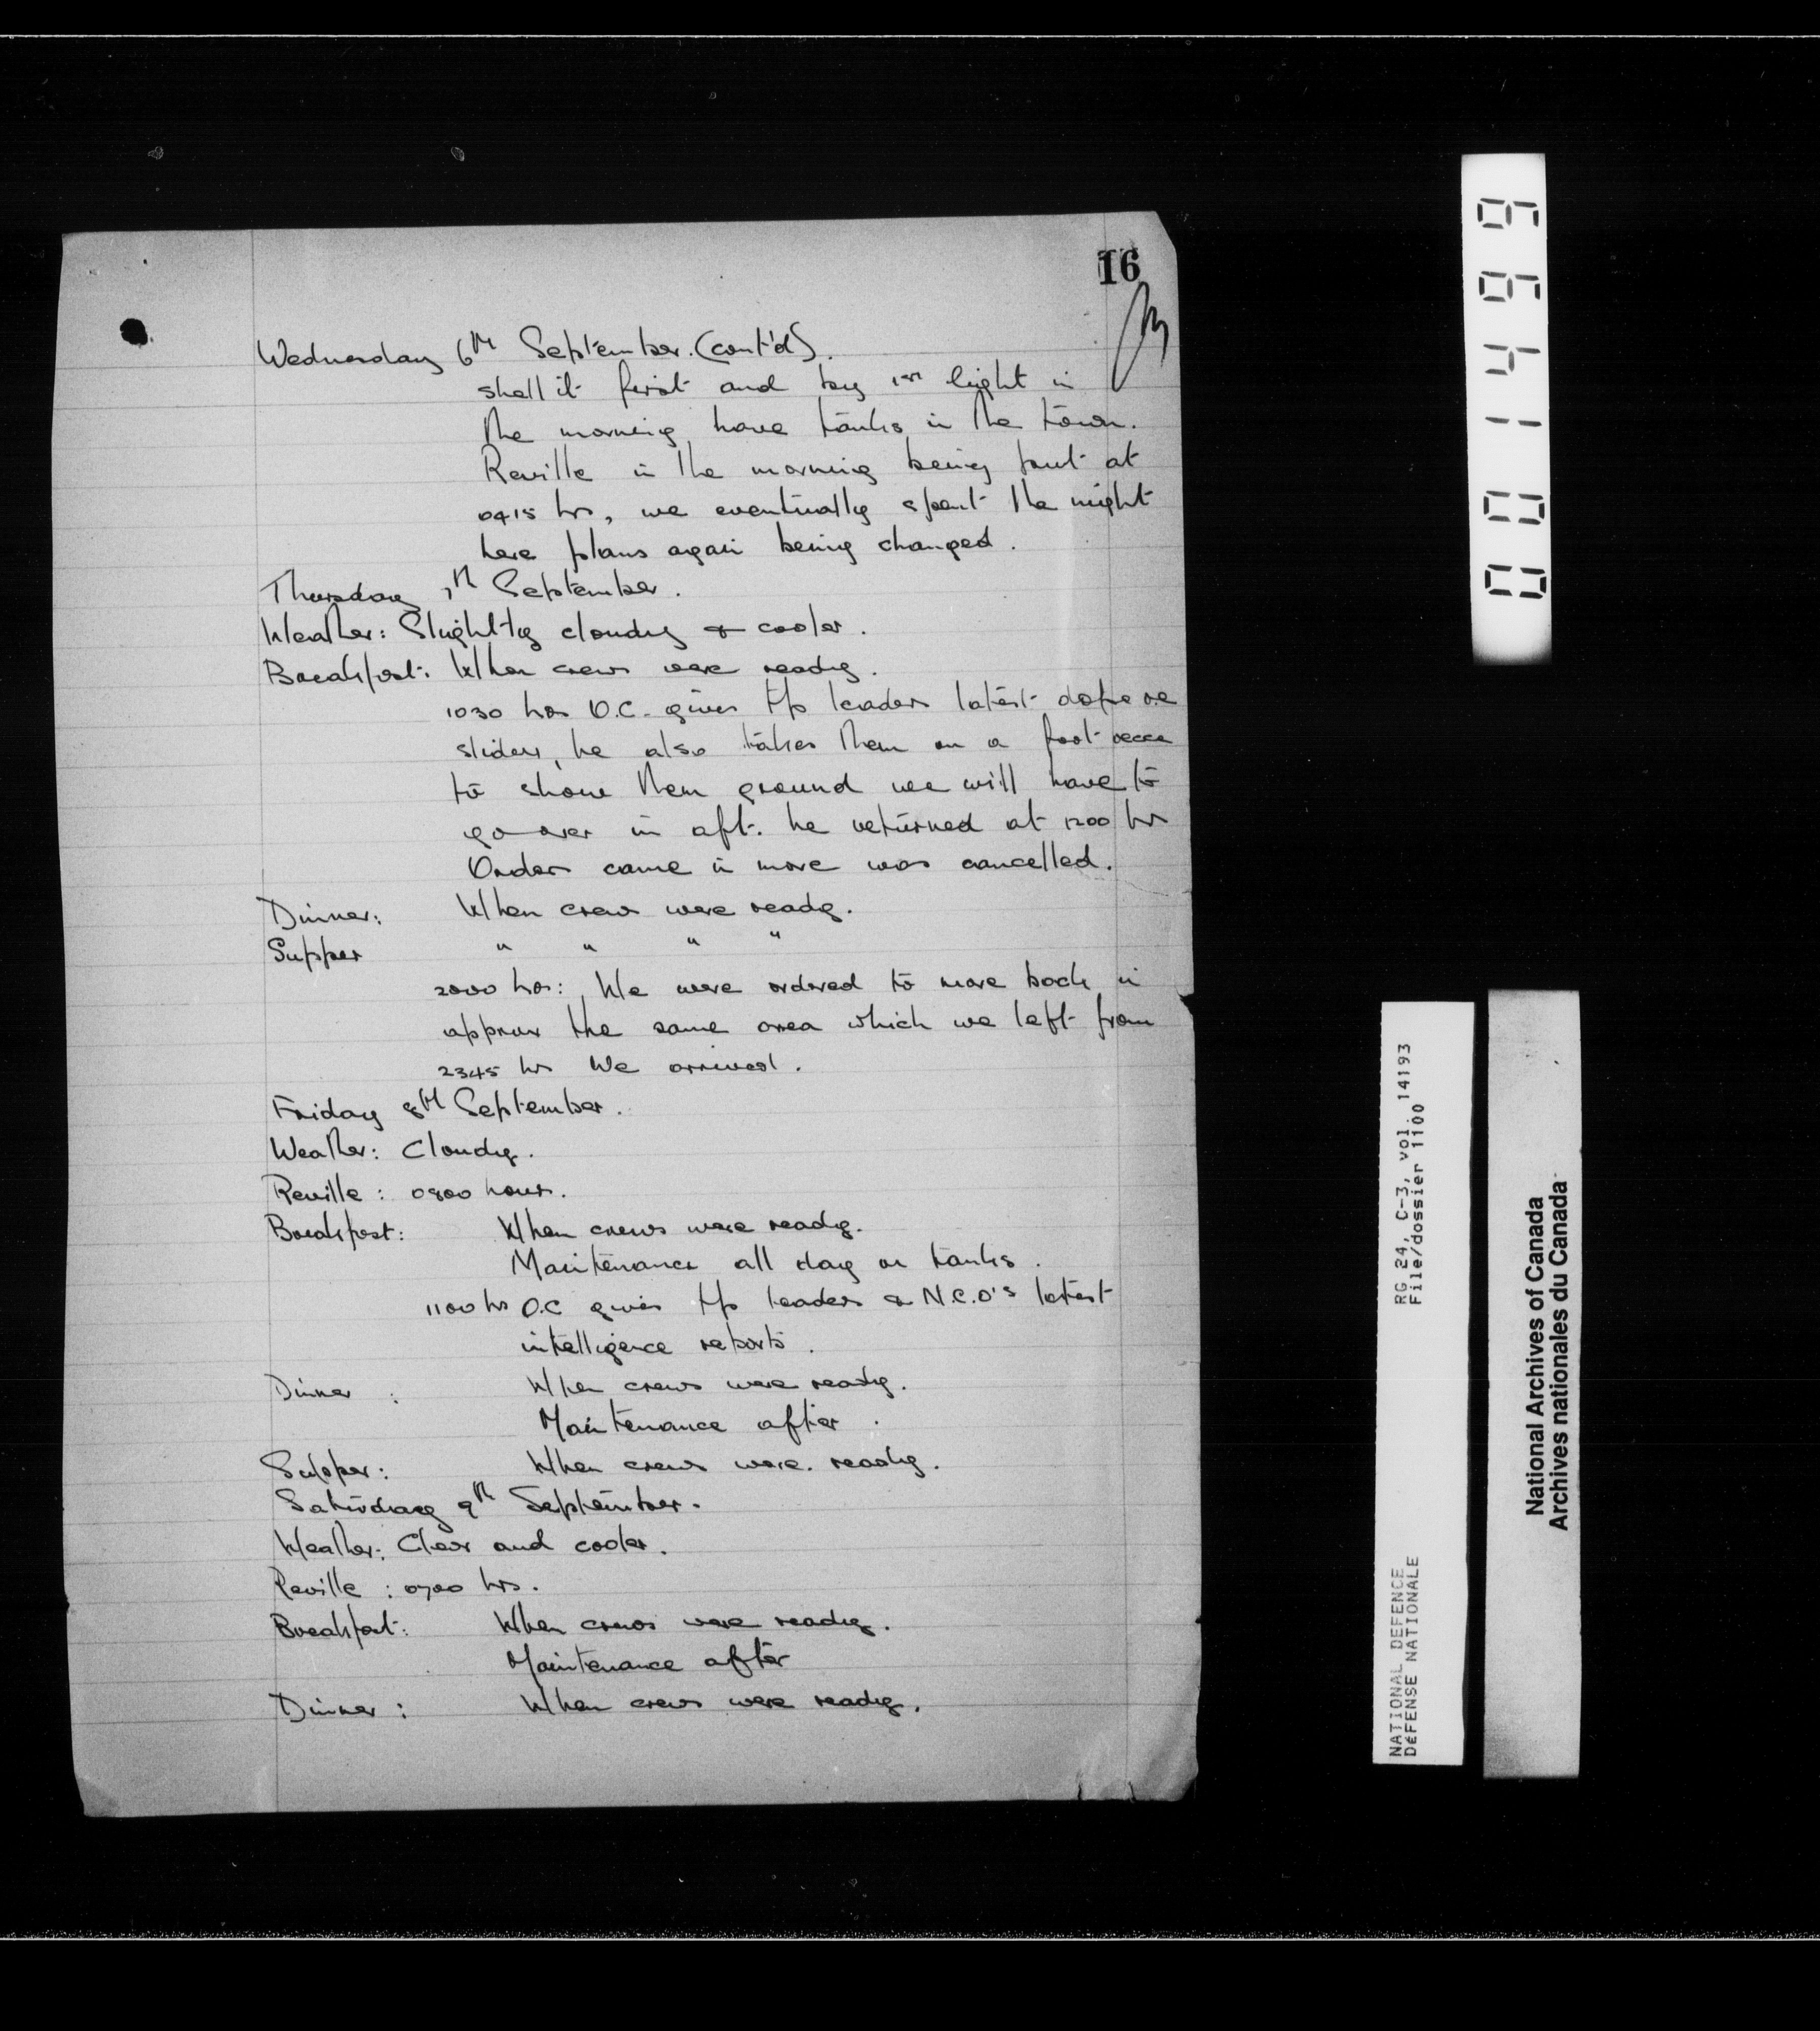 16
Wednesday 6th September. (cont'd).
shell it first and by 1st light in
the morning have tanks in the town.
Reville in the morning being put at
0415 hrs, we eventually spent the night
here plans again being changed.
Thursday 7th September.
Weather: Slightly cloudy & cooler.
Breakfast: When crews were ready.
1030 hrs O.C. gives tp leaders latest dope re
he also takes them on a foot recce
to show them ground we will have to
go over in aft. he returned at 1200 hrs
Orders came in move was cancelled.
Dinner: When crews were ready.
Supper " " " "
2000 hrs: We were ordered to move back in
approx the same area which we left from
2345 hrs We arrived.
Friday 8th September.
Weather: Cloudy.
Reville : 0800 hours.
Breakfast: When crews were ready.
Maintenance all day on tanks.
1100 hrs O.C gives tp leaders & N.C.O's latest
intelligence reports.
Dinner : When crews were ready.
Maintenance after.
Supper: When crews were ready.
Saturday 9th September.
Weather: Clear and cooler.
Reville : 0700 hrs.
Breakfast: When crews were ready.
Maintenance after
Dinner : When crews were ready.
001499
RG 24, C-3, vol. 14193
File/dossier 1100
NATIONAL DEFENCE
DÉFENSE NATIONALE
National Archives of Canada
Archives nationales du Canada